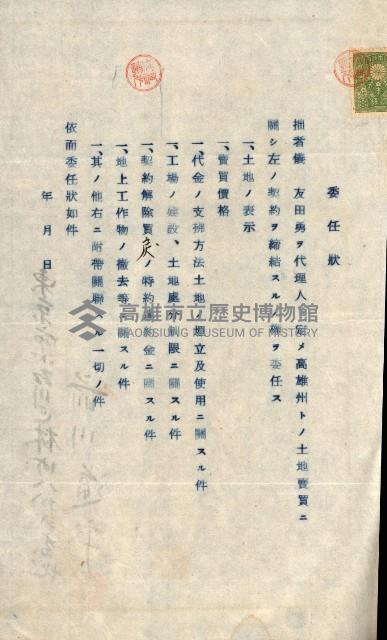 委任狀
拙者儀 友田勇ヲ代理人ト定メ高雄州トノ土地賣買ニ
關シ左ノ契約ヲ締結スルノ權ヲ委任ス
一、土地ノ表示
一、賣買價格
一、代金ノ支拂方法土地ノ埋立及使用ニ關スル件
一、工場ノ建設、土地處分制限ニ關スル件
一、契約解除買戻ノ特約違約金ニ關スル件
一、地上工作物ノ撤去等ニ關スル件
一、其ノ他右ニ附帶關聯スル一切ノ件
依而委任狀如件
年 月 日
高雄市立歷史博物館
KAOHSIUNG MUSEUM OF HISTORY